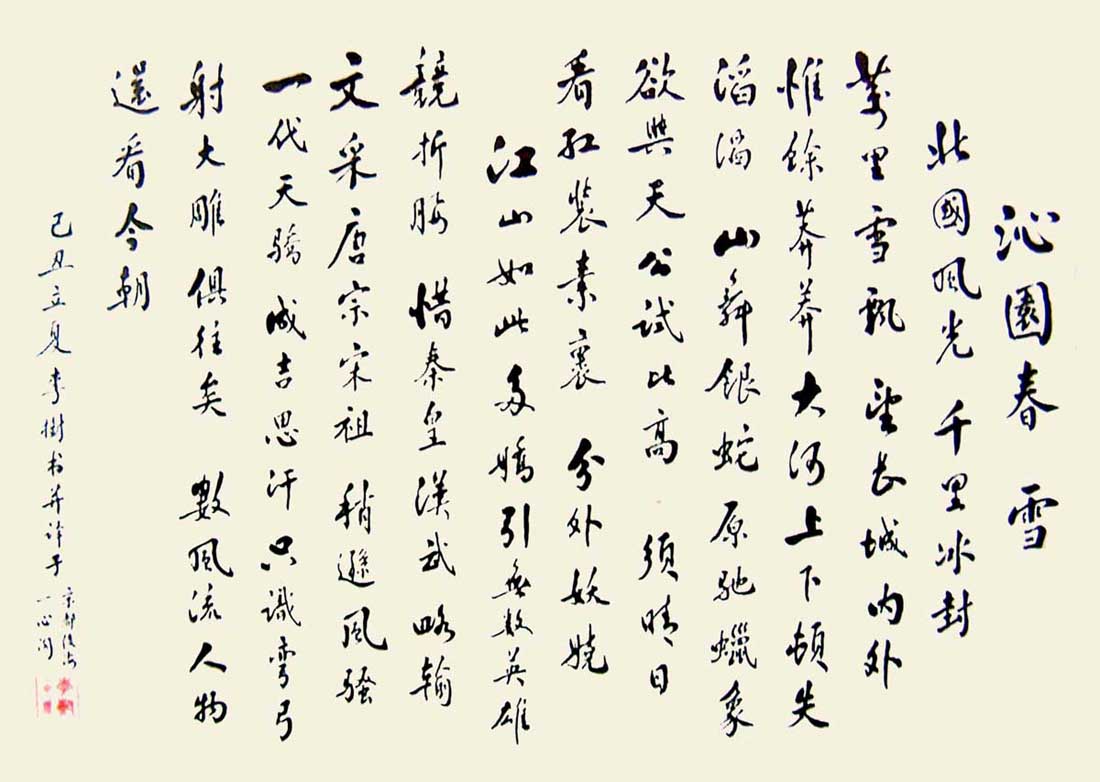 沁園春 雪
北國風光 千里冰封
萬里雪飄 望長城内外
惟餘莽莽大河上下頓失
滔滔 山舞銀蛇原馳蠟象
欲與天公試比高 須晴日
看紅裝素裹 分外妖嬈
江山如此多嬌引無數英雄
競折腰 惜秦皇漢武略輸
文采唐宗宋祖 稍遜風騷
一代天驕 成吉思汗只識彎弓
射大雕 俱往矣 數風流人物
還看今朝
己丑立夏李樹书并
京都
一心阁